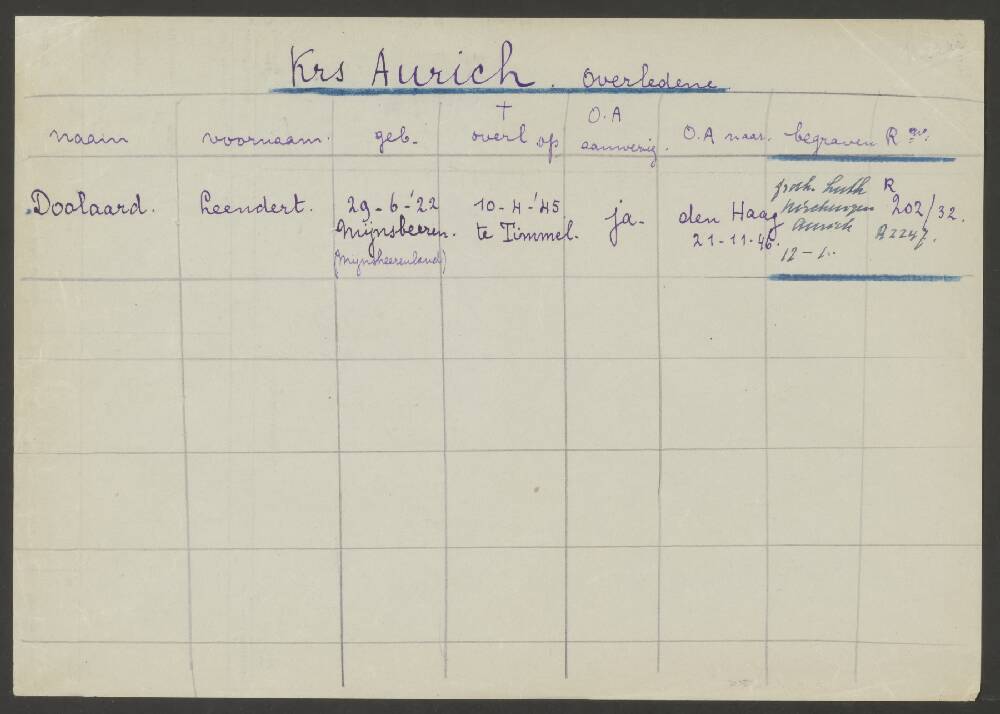 Krs Aurich. Overledene
naam voornaam. geb. † overl op. O.A aanwezig. O.A naar. begraven R
Doolaard. Leendert. 29-6-'22 10-4-'45 ja- den Haag R 202/32.
Mijnsheeren. te Timmel. 21-11-46. Aurich A2247.
(Mijnsheerenland)